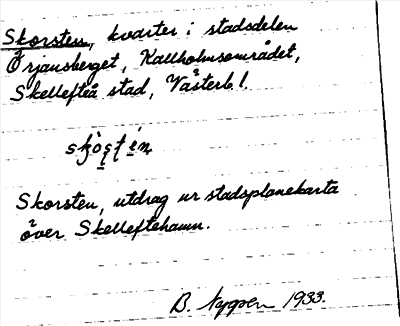 Skorsten, kvarter i stadsdelen
Örjansberget, Kallholmsområdet,
Skellefteå stad, Västerb l.
Skorsten, utdrag ur stadsplanekarta
över Skelleftehamn.
B. 1933.